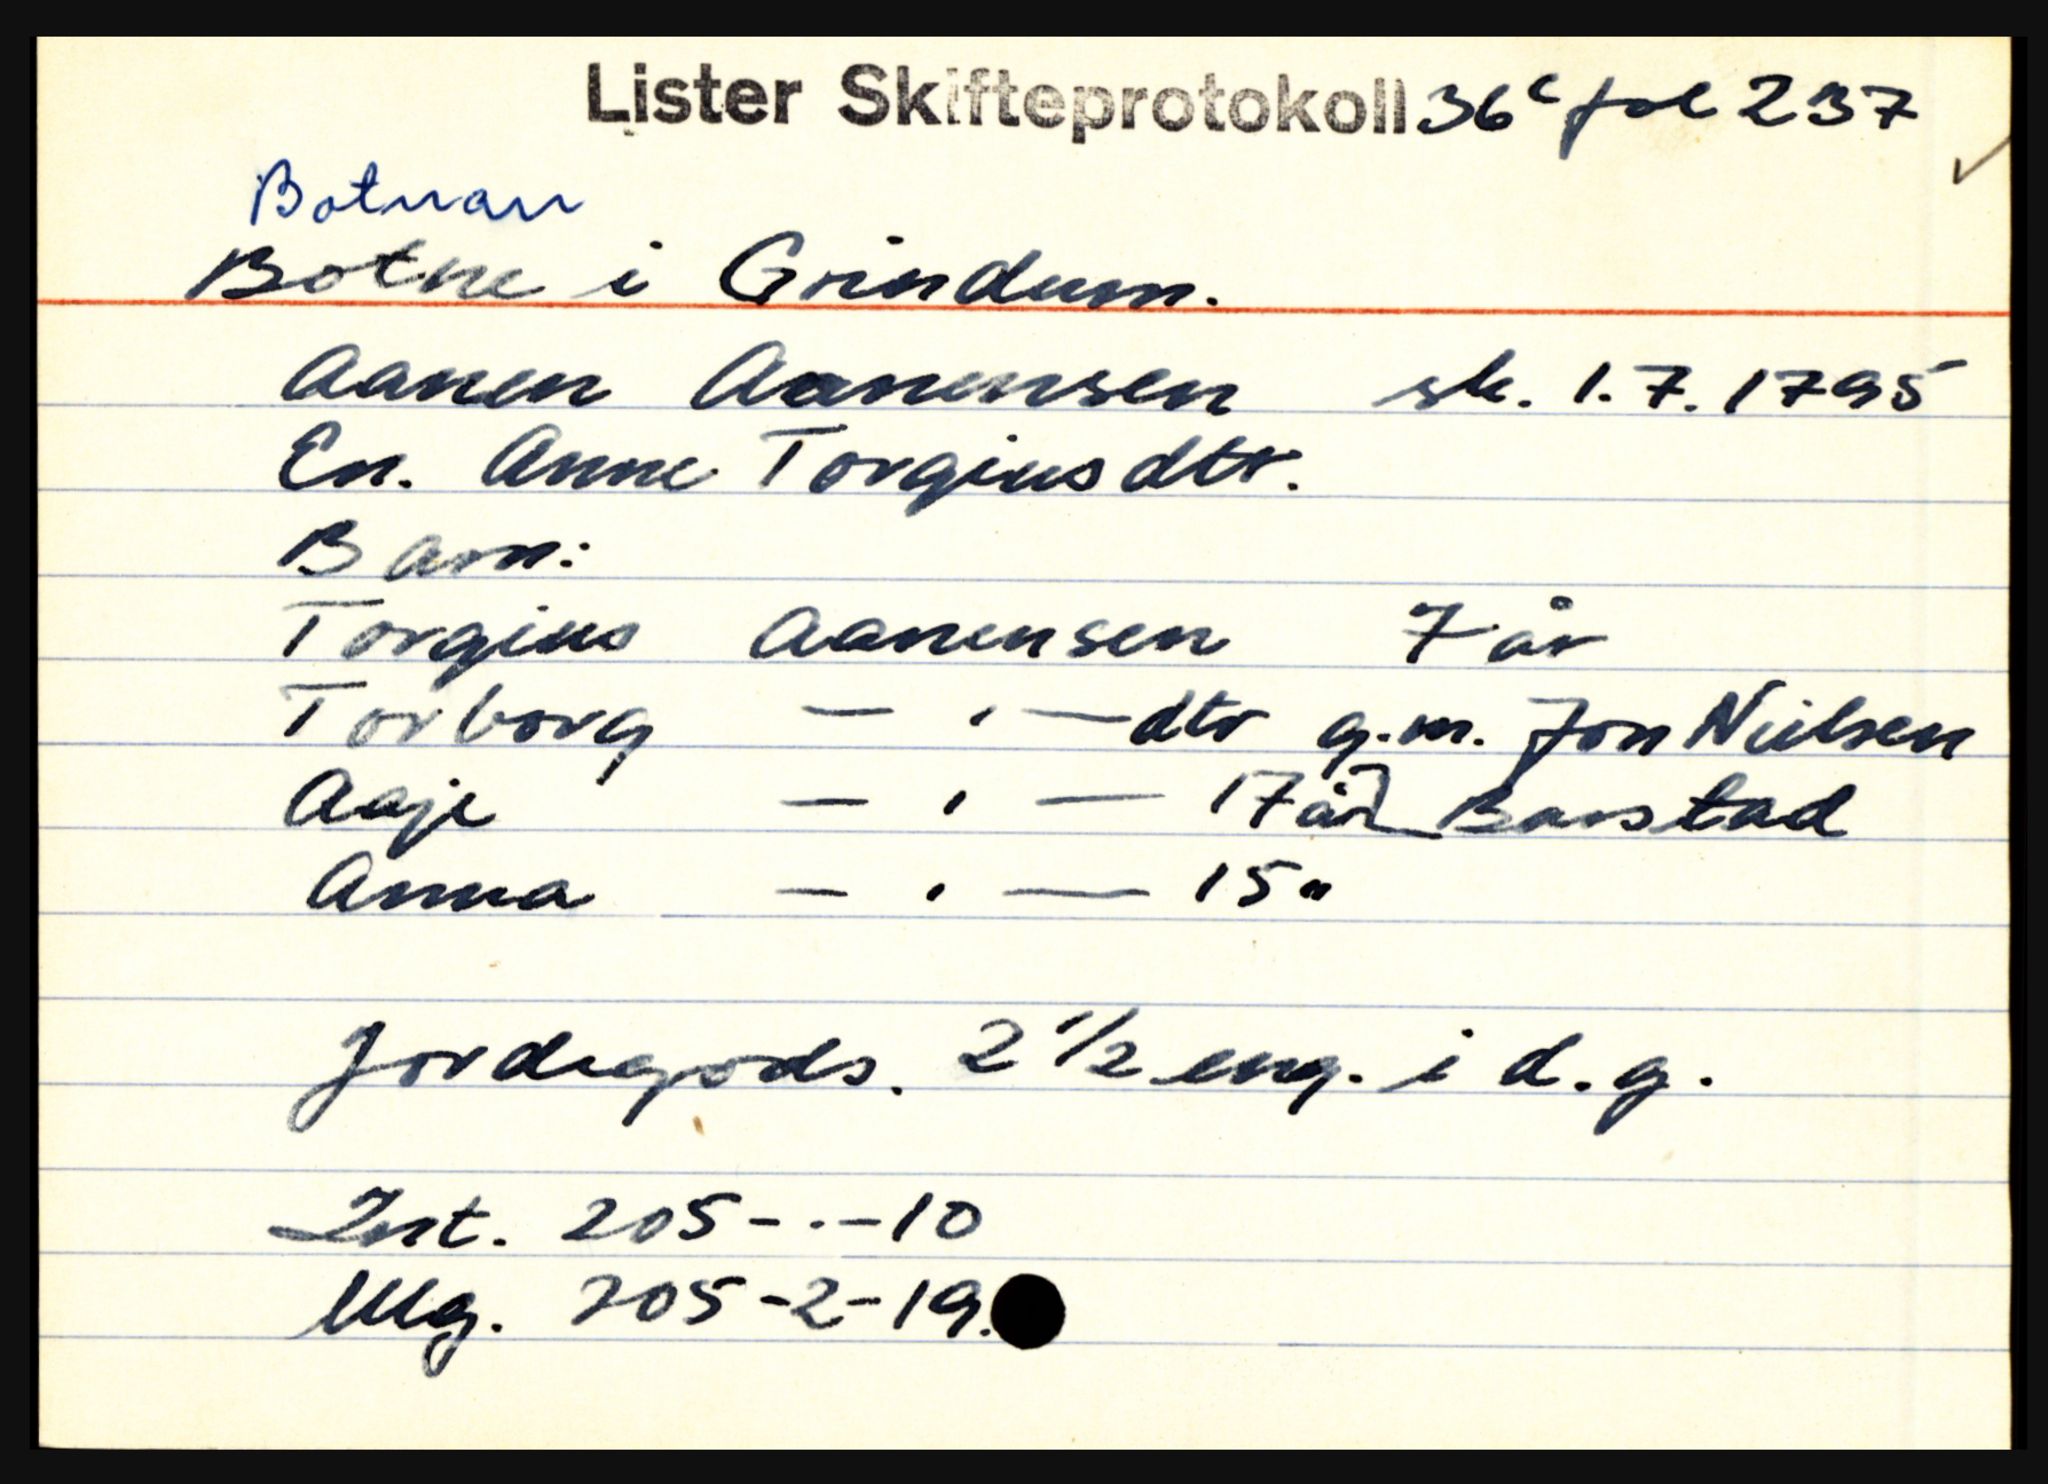 Lister Skifteprotokoll 36c fol 237
Botnan
Botne i Grindum.
Aanen Aanensen sk. 1.7.1795
En. Anne Torgiusdtr.
Barn:
Torgius Aanensen 7 år
Torborg — . — dtr g.m. Jon Nielsen
Aaje — . — 17 år Barstad
Anna — . — 15 "
Jordegods. 2 1/2 eng. i d. g.
Int. 205 - . - 10
Utlg. 205 - 2 - 19.